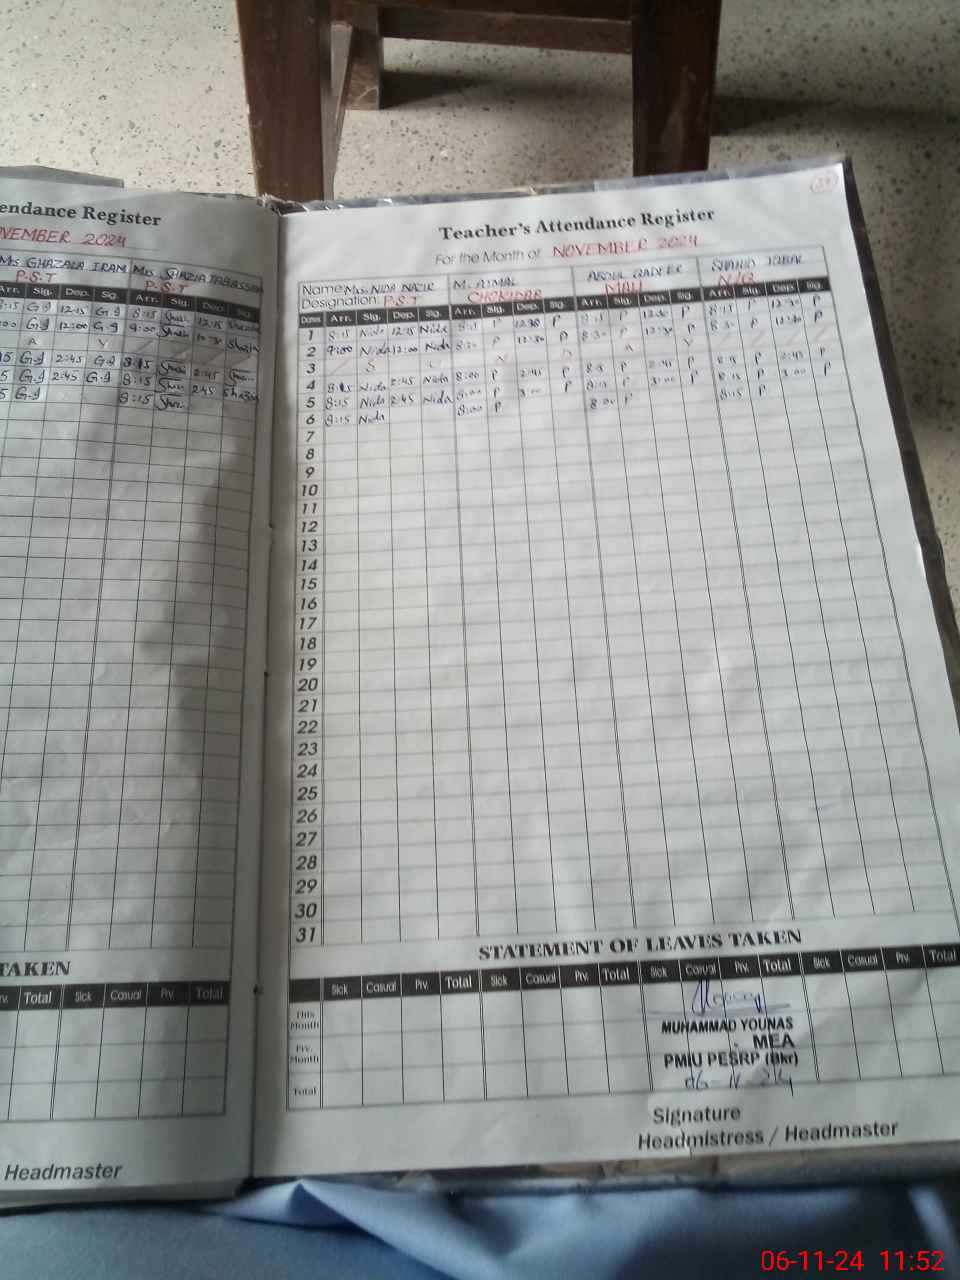 endance Register
VEMBER 2024
Ms GHAZALA IRAM Mrs SHAZIA TABASSUM
P.S.T P.S.T
Arr. Sig. Dep. Sig. Arr. Sig. Dep. Sig.
8:15 G.I 12:15 G.I 8:15 12:15 Shazia
00 G.I 12:00 G.I 9:00 Shazia
A Y
15 G.I 2:45 G.I 8:15 2:45
5 G.I 2:45 G.I 8:15 2:45 Shazia
5 G.I 8:15
TAKEN
rv. Total Sick Casual Prv. Total
Headmaster
Teacher's Attendance Register
For the Month of NOVEMBER 2024
Name Mrs. NIDA NAZIR M. AJMAL ABDUL QADEER SHAHID IQBAL
Designation: P.S.T CHOKIDAR MALI N/Q
Dates Arr. Sig. Dep. Sig. Arr. Sig. Dep. Sig. Arr. Sig. Dep. Sig. Arr. Sig. Dep. Sig.
1 8:15 Nida 12:15 Nida 8:15 P 12:30 P 8:15 P 12:30 P 8:15 P 12:30 P
2 9:00 Nida 12:00 Nida 8:30 P 12:30 P 8:30 P 12:30 P 8:30 P 12:30 P
3 S U N D A Y
4 8:15 Nida 2:45 Nida 8:00 P 2:45 P P 2:45 P P 2:45 P
5 8:15 Nida 2:45 Nida 8:00 P 3:00 P 8:15 P 3:00 P 8:15 P 3:00 P
6 8:15 Nida 8:00 P 8:00 P 8:15 P
7
8
9
10
11
12
13
14
15
16
17
18
19
20
21
22
23
24
25
26
27
28
29
30
31
STATEMENT OF LEAVES TAKEN
Sick Casual Prv. Total Sick Casual Prv. Total Sick Casual Prv. Total Sick Casual Prv. Total
This Month
Prv. Month
Total
MUHAMMAD YOUNAS
MEA
PMIU PESRP (Bkr)
06-11-24
Signature
Headmistress / Headmaster
06-11-24 11:52